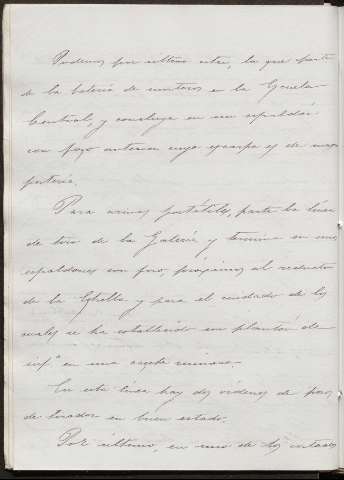 Podemos por último citar, la que parte
de la batería de morteros en la Escuela
Central, y concluye en un espaldón
con foso anterior cuya escarpa es de mam
postería.
Para armas portátiles, parte la línea
de tiro de la Galería y termina en unos
espaldones con foso, próximos al reducto
de la Estrella y para el cuidado de los
cuales se ha establecido un plantón de
inf.ª en una caseta ruinosa.
En esta línea hay dos órdenes de fosos
de tirador en buen estado.
Por último, en uno de los costados